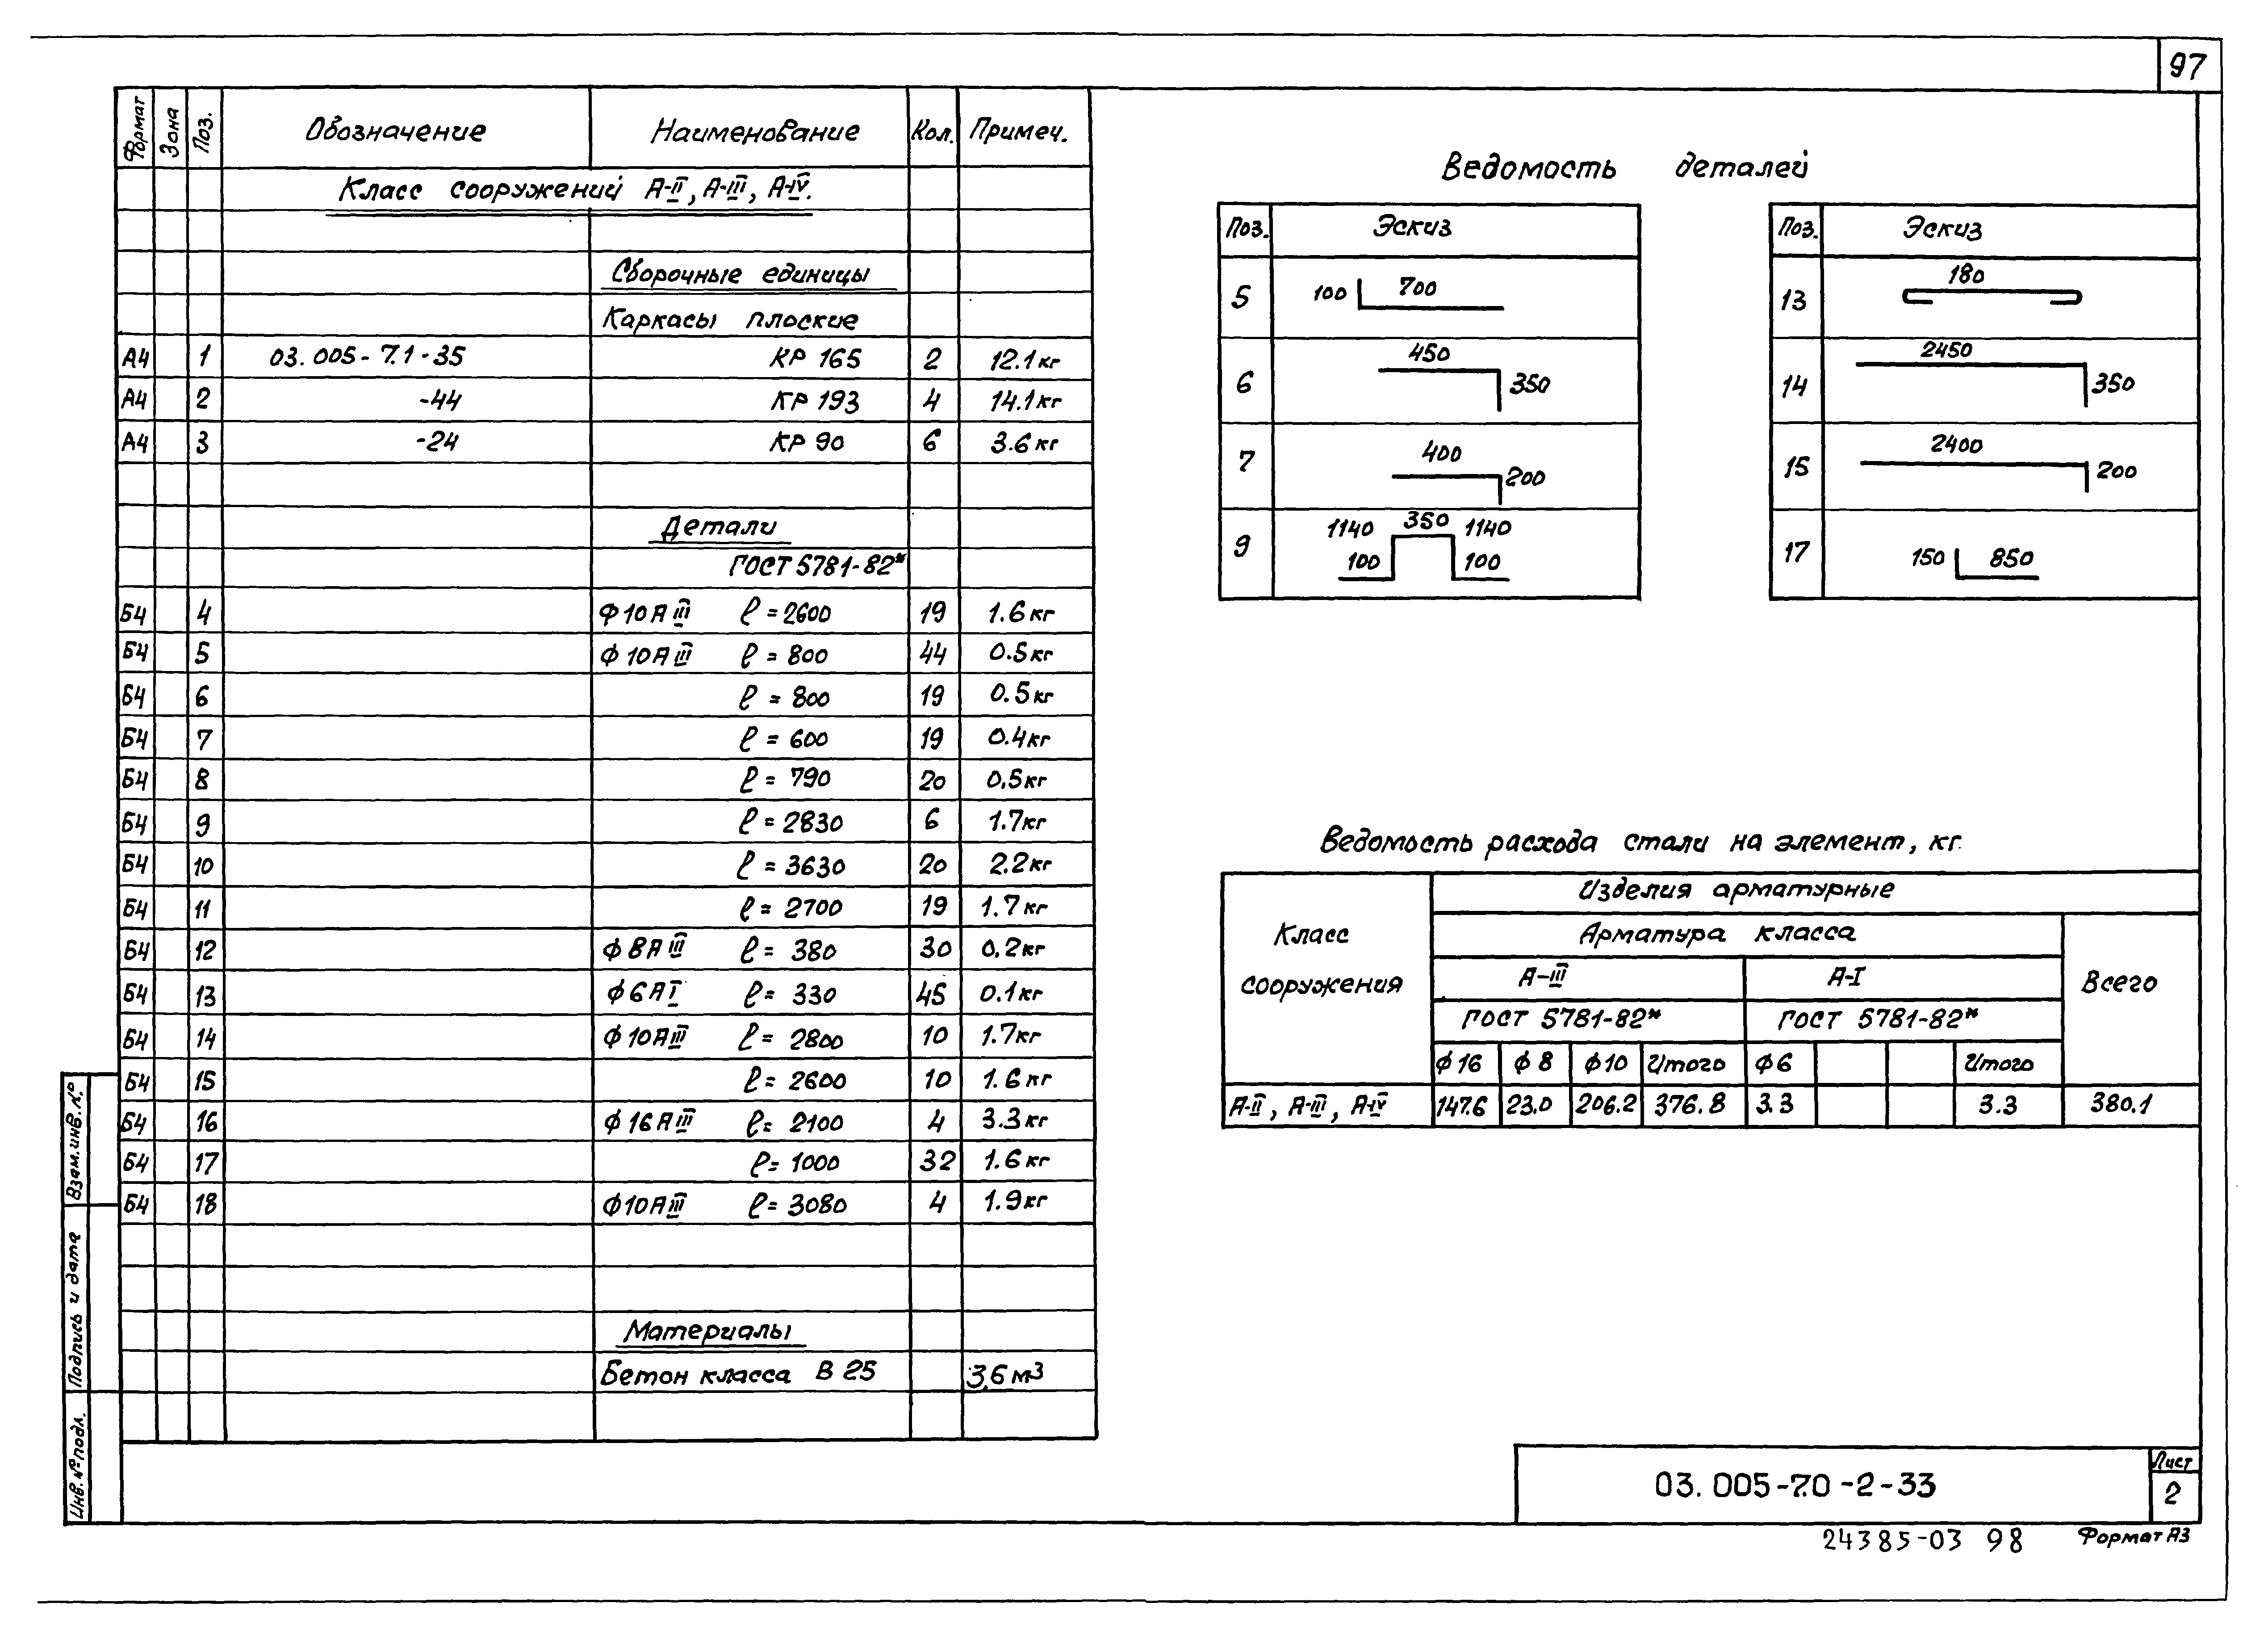 97
Формат Зона Поз. Обозначение Наименование Кол. Примеч.
Класс сооружений А-II, А-III, А-IV.
Сборочные единицы
Каркасы плоские
А4 1 03.005-7.1-35 КР 165 2 12.1 кг
А4 2 -44 КР 193 4 14.1 кг
А4 3 -24 КР 90 6 3.6 кг
Детали
ГОСТ 5781-82*
Б4 4 Ф10АIII ℓ=2600 19 1.6 кг
Б4 5 Ф10АIII ℓ=800 44 0.5 кг
Б4 6 ℓ=800 19 0.5 кг
Б4 7 ℓ=600 19 0.4 кг
Б4 8 ℓ=790 20 0,5 кг
Б4 9 ℓ=2830 6 1.7 кг
Б4 10 ℓ=3630 20 2.2 кг
Б4 11 ℓ=2700 19 1.7 кг
Б4 12 Ф8АIII ℓ=380 30 0.2 кг
Б4 13 Ф6АI ℓ=330 45 0.1 кг
Б4 14 Ф10АIII ℓ=2800 10 1.7 кг
Б4 15 ℓ=2600 10 1.6 кг
Б4 16 Ф16АIII ℓ=2100 4 3.3 кг
Б4 17 ℓ=1000 32 1.6 кг
Б4 18 Ф10АIII ℓ=3080 4 1.9 кг
Материалы
Бетон класса В 25 3,6 м3
Ведомость деталей
Поз. Эскиз
5 100 700
6 450 350
7 400 200
9 1140 350 1140
100 100
Поз. Эскиз
13 180
14 2450 350
15 2400 200
17 150 850
Ведомость расхода стали на элемент, кг.
Класс сооружения
Изделия арматурные
Арматура класса
Всего
А-III А-I
ГОСТ 5781-82* ГОСТ 5781-82*
Ф16 Ф8 Ф10 Итого Ф6 Итого
А-II, А-III, А-IV 147.6 23.0 206.2 376.8 3.3 3.3 380.1
Взам.инв.№
Подпись и дата
Инв.№ подл.
03.005-7.0-2-33
Лист
2
24385-03 98
Формат А3